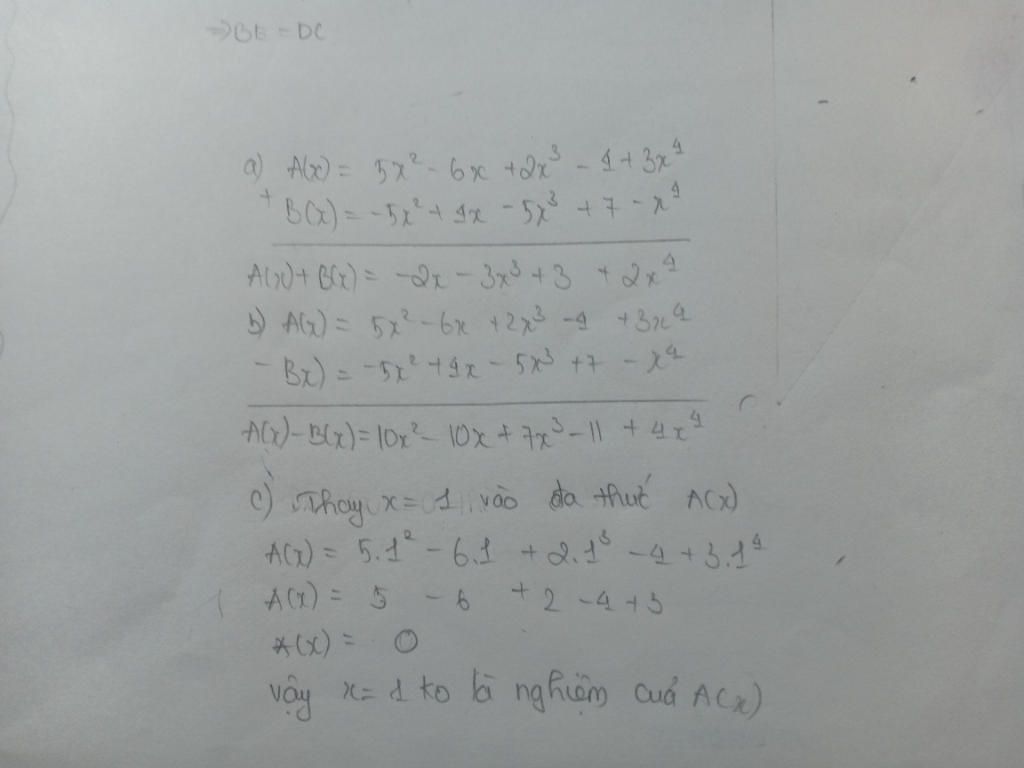 ⇒ BE = DC
a) A(x) = 5x² - 6x + 2x³ - 4 + 3x⁴
+ B(x) = -5x² + 4x - 5x³ + 7 - x⁴
A(x) + B(x) = -2x - 3x³ + 3 + 2x⁴
b) A(x) = 5x² - 6x + 2x³ - 4 + 3x⁴
- Bx) = -5x² + 4x - 5x³ + 7 - x⁴
A(x) - B(x) = 10x² - 10x + 7x³ - 11 + 4x⁴
c) Thay x = 1 vào đa thức A(x)
A(x) = 5.1² - 6.1 + 2.1³ - 4 + 3.1⁴
A(x) = 5 - 6 + 2 - 4 + 3
A(x) = 0
vậy x = 1 ko là nghiệm cuả A(x)